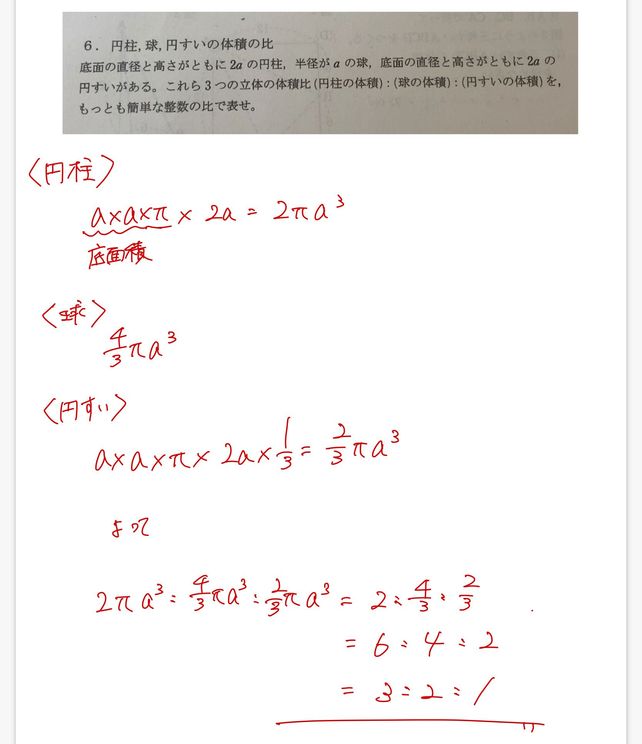 6. 円柱, 球, 円すいの体積の比
底面の直径と高さがともに 2a の円柱, 半径が a の球, 底面の直径と高さがともに 2a の
円すいがある。これら 3 つの立体の体積比 (円柱の体積) : (球の体積) : (円すいの体積) を,
もっとも簡単な整数の比で表せ。
〈円柱〉
a×a×π × 2a = 2πa³
底面積
〈球〉
4/3 πa³
〈円すい〉
a×a×π× 2a × 1/3 = 2/3 πa³
よって
2πa³ : 4/3 πa³ : 2/3 πa³ = 2 : 4/3 : 2/3
= 6 : 4 : 2
= 3 : 2 : 1